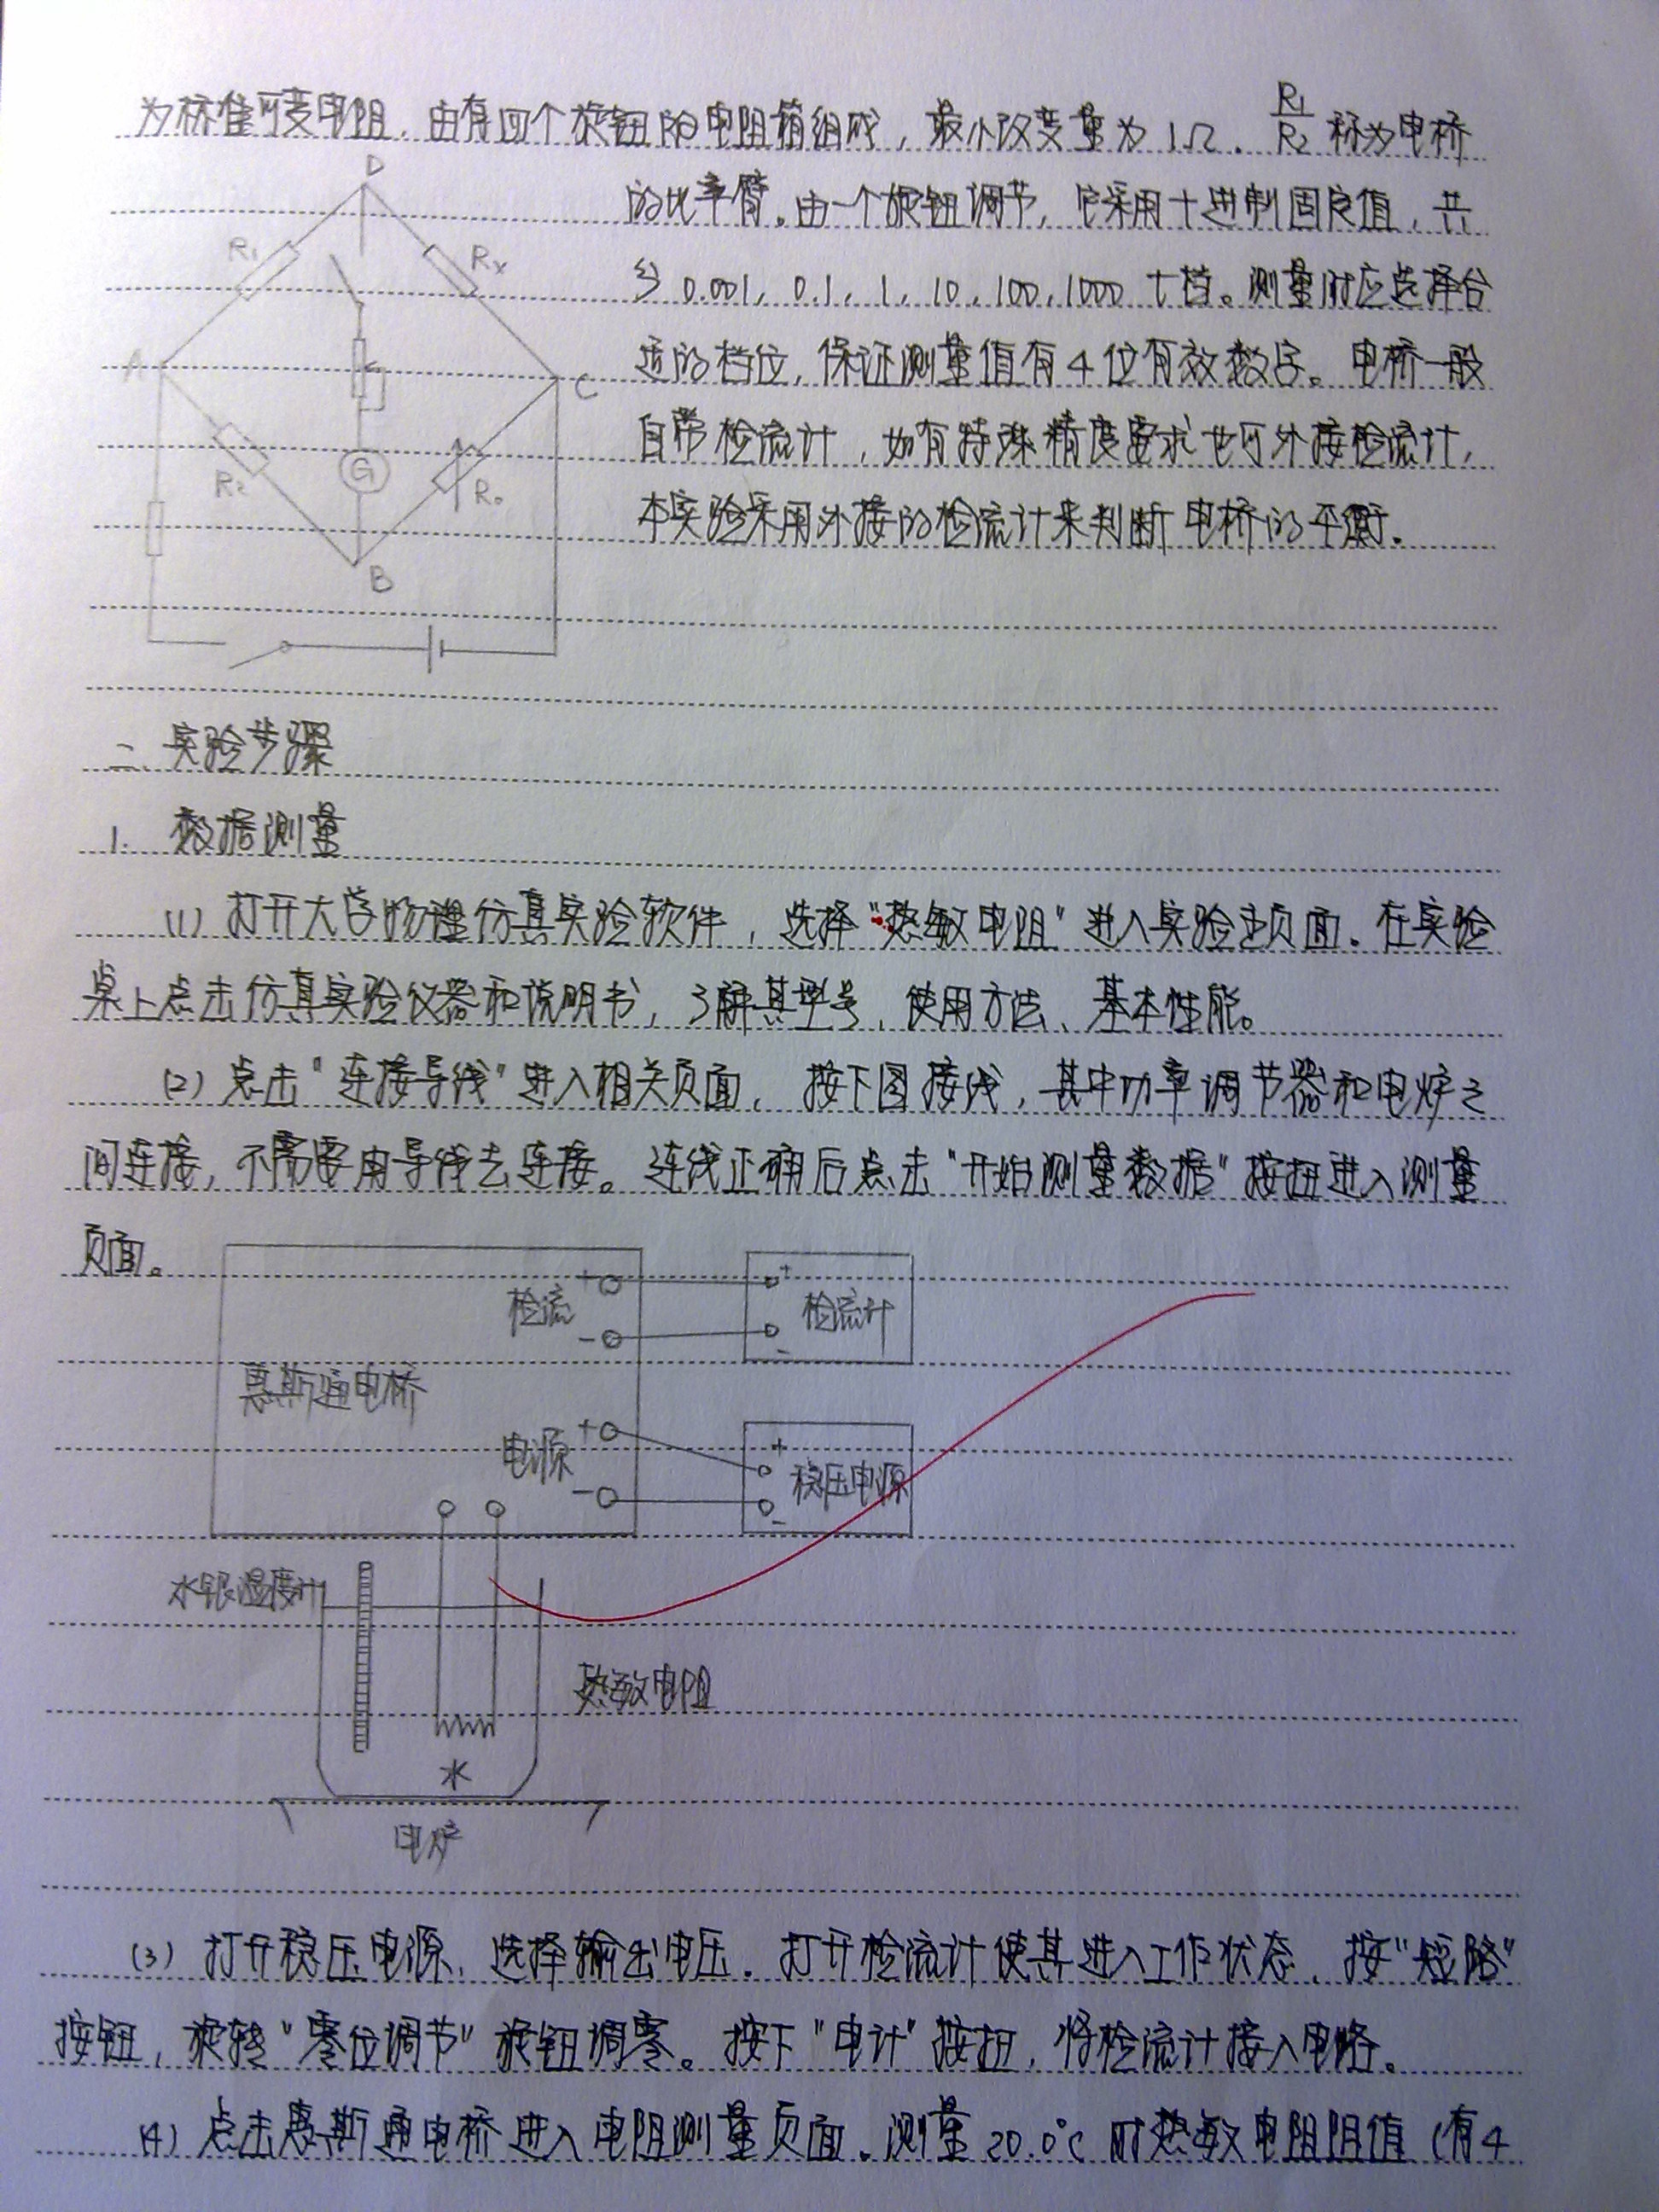 为标准可变电阻，由有四个旋钮的电阻箱组成，最小改变量为1Ω．R1/R2 称为电桥
D
的比率臂。由一个旋钮调节，它采用十进制固定值，共
R1
Rx
分 0.001, 0.1, 1, 10, 100, 1000 七档。测量时应选择合
适的档位，保证测量值有4位有效数字。电桥一般
A
C
自带检流计，如有特殊精度要求也可外接检流计，
G
R2
R0
本实验采用外接的检流计来判断电桥的平衡．
B
二、实验步骤
1. 数据测量
(1) 打开大学物理仿真实验软件，选择"热敏电阻"进入实验主页面．在实验
桌上点击仿真实验仪器和说明书，了解其型号、使用方法、基本性能。
(2) 点击"连接导线"进入相关页面，按下图接线，其中功率调节器和电炉之
间连接，不需要用导线去连接。连线正确后点击"开始测量数据"按扭进入测量
页面。
检流 + -
+ 检流计 -
惠斯通电桥
电源 + -
+ 稳压电源 -
水银温度计
热敏电阻
水
电炉
(3) 打开稳压电源，选择输出电压．打开检流计使其进入工作状态，按"短路"
按钮，旋转"零位调节"旋钮调零。按下"电计"按扭，将检流计接入电路。
(4) 点击惠斯通电桥进入电阻测量页面．测量20.0℃时热敏电阻阻值（有4